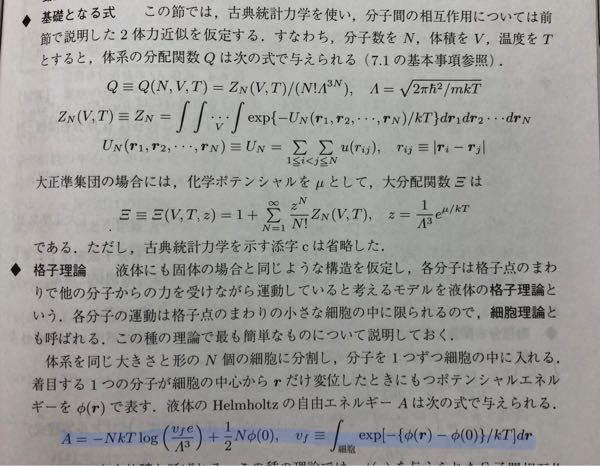 ◆ 基礎となる式　この節では，古典統計力学を使い，分子間の相互作用については前
節で説明した2体力近似を仮定する．すなわち，分子数を N，体積を V，温度を T
とすると，体系の分配関数 Q は次の式で与えられる（7.1 の基本事項参照）．
Q ≡ Q(N, V, T) = Z_N(V, T)/(N!Λ^{3N}),　Λ = √(2πħ²/mkT)
Z_N(V, T) ≡ Z_N = ∫∫∫⋯_V∫ exp{−U_N(r₁, r₂, ⋯, r_N)/kT}dr₁dr₂⋯dr_N
U_N(r₁, r₂, ⋯, r_N) ≡ U_N = Σ Σ_{1≦i<j≦N} u(r_{ij}),　r_{ij} ≡ |r_i − r_j|
大正準集団の場合には，化学ポテンシャルを μ として，大分配関数 Ξ は
Ξ ≡ Ξ(V, T, z) = 1 + Σ_{N=1}^{∞} z^N/N! Z_N(V, T),　z = 1/Λ³ e^{μ/kT}
である．ただし，古典統計力学を示す添字 c は省略した．
◆ 格子理論　液体にも固体の場合と同じような構造を仮定し，各分子は格子点のまわ
りで他の分子からの力を受けながら運動していると考えるモデルを液体の格子理論と
いう．各分子の運動は格子点のまわりの小さな細胞の中に限られるので，細胞理論と
も呼ばれる．この種の理論で最も簡単なものについて説明しておく．
体系を同じ大きさと形の N 個の細胞に分割し，分子を1つずつ細胞の中に入れる．
着目する1つの分子が細胞の中心から r だけ変位したときにもつポテンシャルエネル
ギーを φ(r) で表す．液体の Helmholtz の自由エネルギー A は次の式で与えられる．
A = −NkT log(v_f e/Λ³) + 1/2 Nφ(0),　v_f ≡ ∫_{細胞} exp[−{φ(r) − φ(0)}/kT]dr